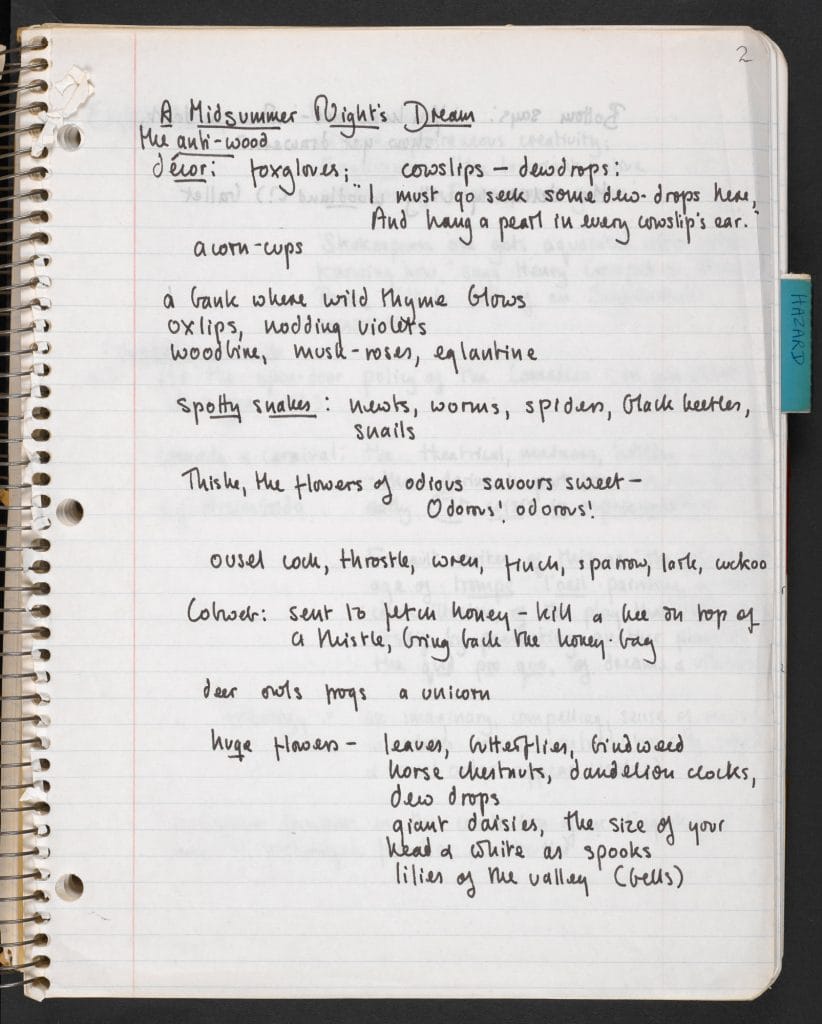 2
A Midsummer Night's Dream
the anti-wood
décor: foxgloves; cowslips – dewdrops:
"I must go seek some dew-drops here,
And hang a pearl in every cowslip's ear."
acorn-cups
a bank where wild thyme blows
oxlips, nodding violets
woodbine, musk-roses, eglantine
HAZARD
spotty snakes: newts, worms, spiders, black beetles,
snails
Thisbe, the flowers of odious savours sweet –
Odorous! odorous!
ousel cock, throstle, wren, finch, sparrow, lark, cuckoo
Cobweb: sent to fetch honey – kill a bee on top of
a thistle, bring back the honey-bag
deer owls frogs a unicorn
huge flowers – leaves, butterflies, bindweed
horse chestnuts, dandelion clocks,
dew drops
giant daisies, the size of your
head & white as spooks
lilies of the valley (bells)